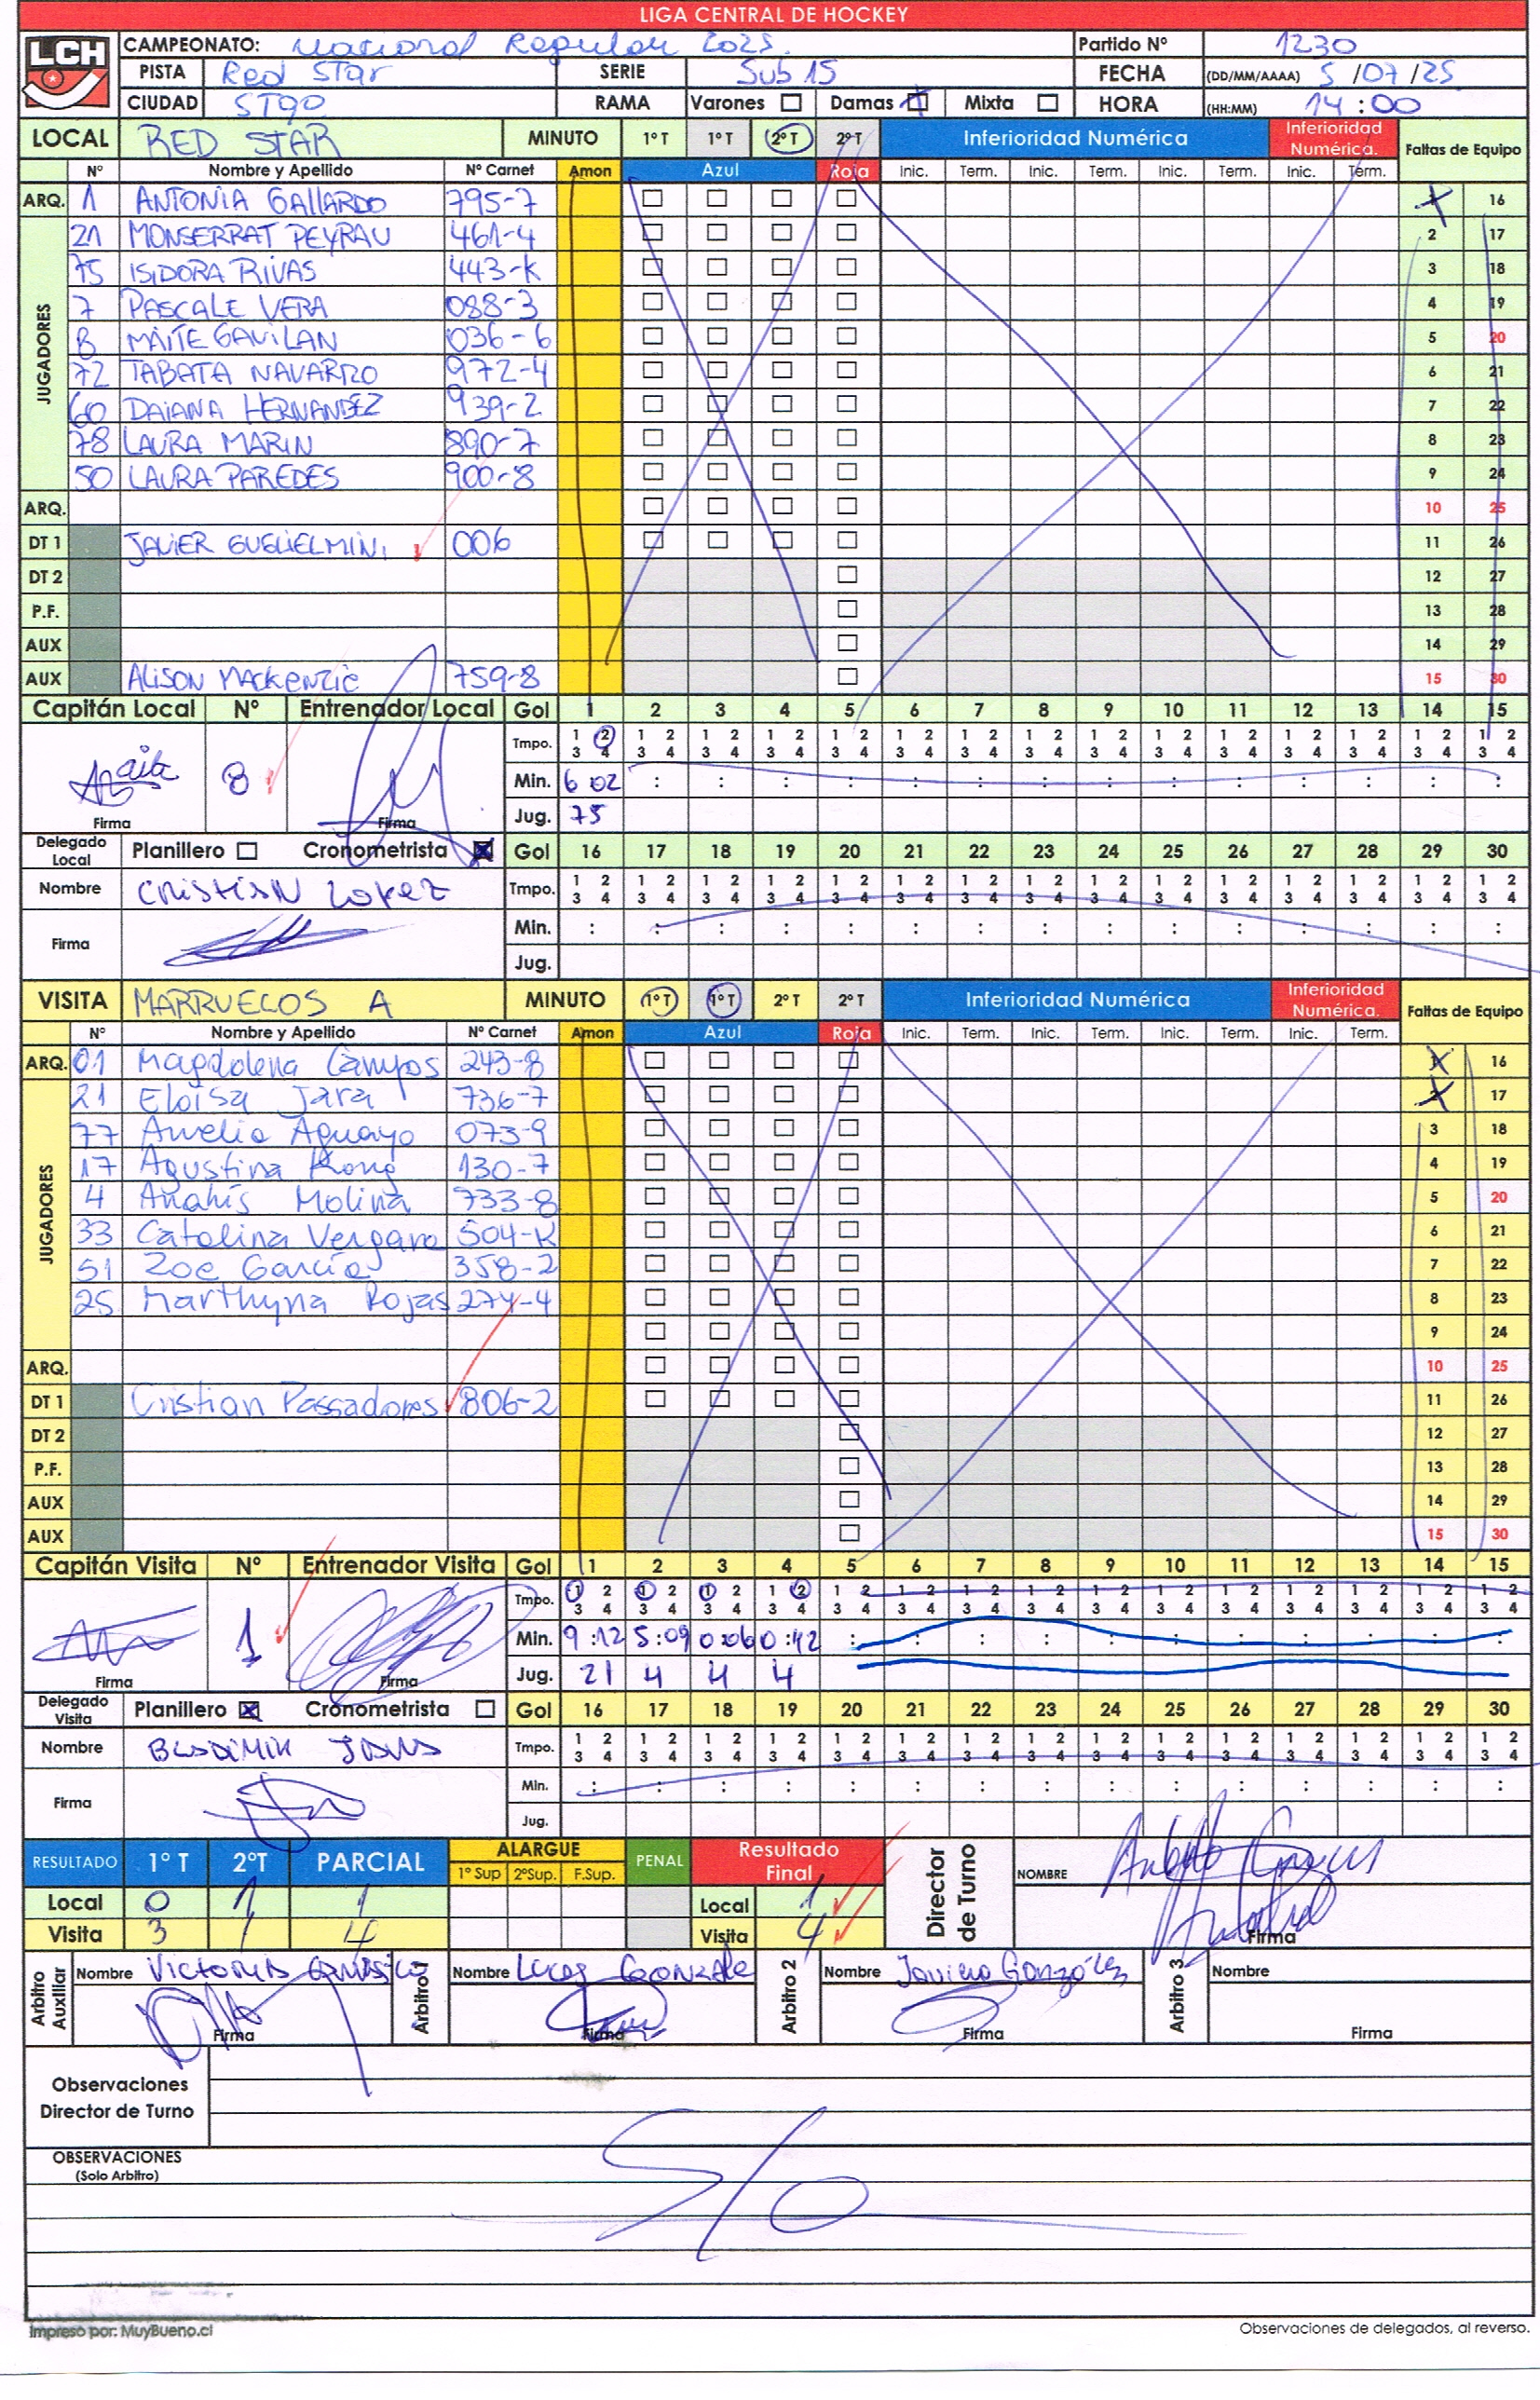 LIGA CENTRAL DE HOCKEY
LCH
CAMPEONATO: Nacional Regular 2025. Partido Nº 1230
PISTA Red Star SERIE Sub 15 FECHA (DD/MM/AAAA) 5 /07 /25
CIUDAD STGO RAMA Varones Damas Mixta HORA (HH:MM) 14 :00
LOCAL RED STAR MINUTO 1º T 1º T 2º T 2º T Inferioridad Numérica Inferioridad Numérica. Faltas de Equipo
Nº Nombre y Apellido Nº Carnet Amon Azul Roja Inic. Term. Inic. Term. Inic. Term. Inic. Term.
ARQ. 1 ANTONIA GALLARDO 795-7 1 16
JUGADORES
21 MONSERRAT PEYRAU 461-4 2 17
75 ISIDORA RIVAS 443-K 3 18
7 PASCALE VERA 088-3 4 19
8 MAITE GAVILAN 036-6 5 20
72 TABATA NAVARRO 972-4 6 21
60 DAIANA HERNANDEZ 939-2 7 22
78 LAURA MARIN 890-7 8 23
50 LAURA PAREDES 900-8 9 24
ARQ. 10 25
DT 1 JAVIER GUGLIELMINI 006 11 26
DT 2 12 27
P.F. 13 28
AUX 14 29
AUX ALISON MACKENZIE 759-8 15 30
Capitán Local Nº Entrenador Local Gol 1 2 3 4 5 6 7 8 9 10 11 12 13 14 15
Tmpo. 1 2 1 2 1 2 1 2 1 2 1 2 1 2 1 2 1 2 1 2 1 2 1 2 1 2 1 2 1 2
3 4 3 4 3 4 3 4 3 4 3 4 3 4 3 4 3 4 3 4 3 4 3 4 3 4 3 4 3 4
8 Min. 6 02 : : : : : : : : : : : : : :
Firma Firma Jug. 75
Delegado Local Planillero Cronometrista Gol 16 17 18 19 20 21 22 23 24 25 26 27 28 29 30
Nombre CRISTIAN LOPEZ Tmpo. 1 2 1 2 1 2 1 2 1 2 1 2 1 2 1 2 1 2 1 2 1 2 1 2 1 2 1 2 1 2
3 4 3 4 3 4 3 4 3 4 3 4 3 4 3 4 3 4 3 4 3 4 3 4 3 4 3 4 3 4
Firma Min. : : : : : : : : : : : : : : :
Jug.
VISITA MARRUECOS A MINUTO 1º T 1º T 2º T 2º T Inferioridad Numérica Inferioridad Numérica. Faltas de Equipo
Nº Nombre y Apellido Nº Carnet Amon Azul Roja Inic. Term. Inic. Term. Inic. Term. Inic. Term.
ARQ. 01 Magdalena Campos 243-8 1 16
JUGADORES
21 Eloísa Jara 736-7 2 17
77 Amelia Aguayo 073-9 3 18
17 Agustina Kong 130-7 4 19
4 Anahís Molina 733-8 5 20
33 Catalina Vergara 504-K 6 21
51 Zoe García 358-2 7 22
25 Marthyna Rojas 274-4 8 23
9 24
ARQ. 10 25
DT 1 Cristian Passadores 806-2 11 26
DT 2 12 27
P.F. 13 28
AUX 14 29
AUX 15 30
Capitán Visita Nº Entrenador Visita Gol 1 2 3 4 5 6 7 8 9 10 11 12 13 14 15
Tmpo. 1 2 1 2 1 2 1 2 1 2 1 2 1 2 1 2 1 2 1 2 1 2 1 2 1 2 1 2 1 2
3 4 3 4 3 4 3 4 3 4 3 4 3 4 3 4 3 4 3 4 3 4 3 4 3 4 3 4 3 4
1 Min. 9 :12 5 :09 0:06 0:42 : : : : : : : : : : :
Firma Firma Jug. 21 4 4 4
Delegado Visita Planillero Cronometrista Gol 16 17 18 19 20 21 22 23 24 25 26 27 28 29 30
Nombre Tmpo. 1 2 1 2 1 2 1 2 1 2 1 2 1 2 1 2 1 2 1 2 1 2 1 2 1 2 1 2 1 2
3 4 3 4 3 4 3 4 3 4 3 4 3 4 3 4 3 4 3 4 3 4 3 4 3 4 3 4 3 4
Firma Min. : : : : : : : : : : : : : : :
Jug.
RESULTADO 1º T 2ºT PARCIAL ALARGUE 1º Sup 2ºSup. F.Sup. PENAL Resultado Final Director de Turno NOMBRE
Local 0 1 1 Local 1
Visita 3 1 4 Visita 4 Firma
Arbitro Auxiliar Nombre Arbitro 1 Nombre Lucas Gonzale Arbitro 2 Nombre Javiera González Arbitro 3 Nombre
Firma Firma Firma Firma
Observaciones
Director de Turno
OBSERVACIONES
(Solo Arbitro)
S/O
Impreso por: MuyBueno.cl Observaciones de delegados, al reverso.